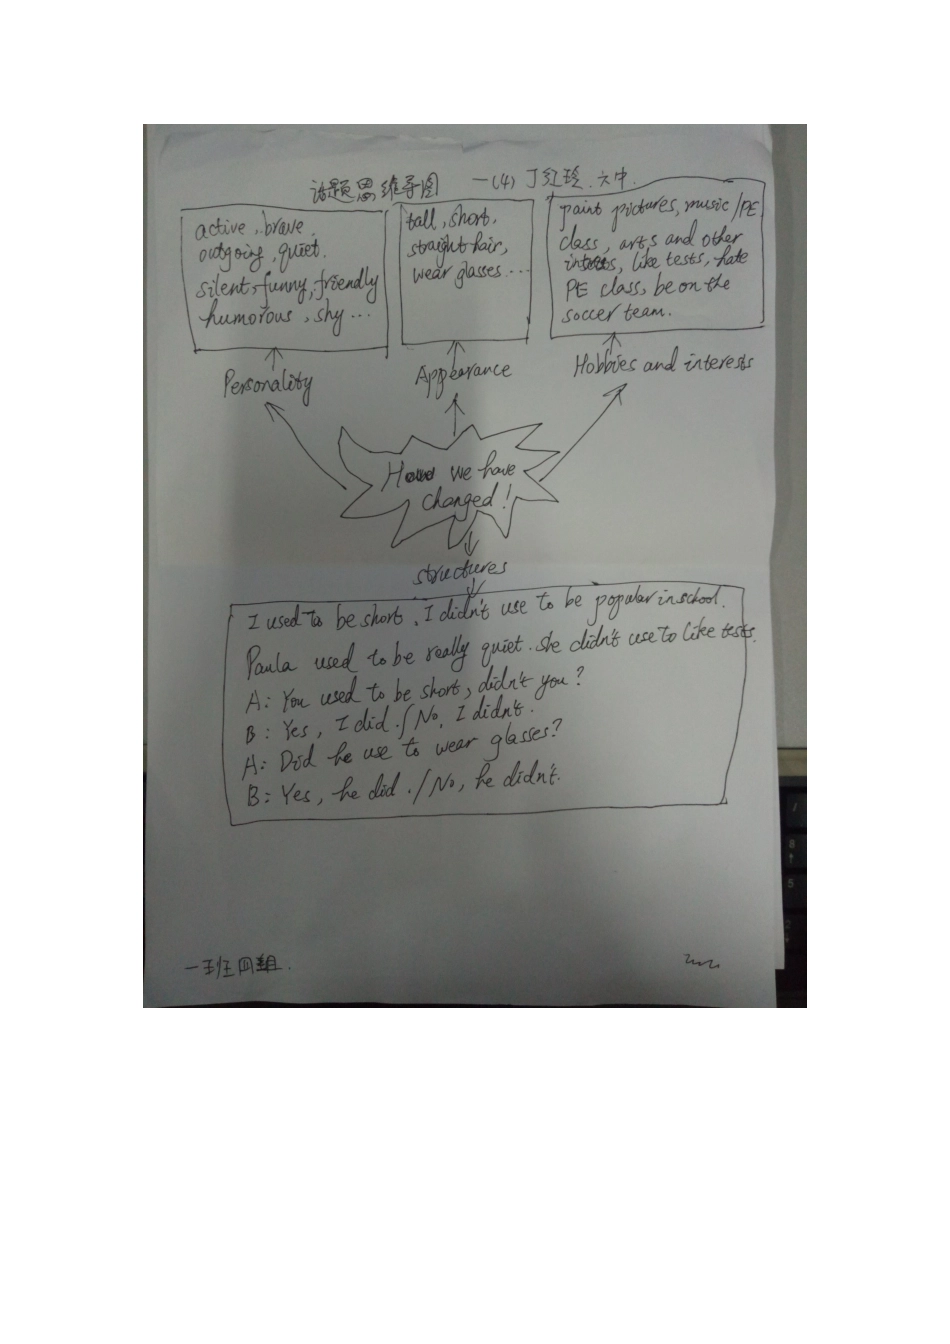 话题思维导图 一(4) 丁红玲.六中.
active, brave,
outgoing, quiet.
silent, funny, friendly
humorous, shy ...
tall, short,
straight hair,
wear glasses ...
paint pictures, music/PE
class, arts and other
like tests, hate
PE class, be on the
soccer team.
Personality
Appearance
Hobbies and interests
How we have
changed!
structures
I used to be short, I didn't use to be popular in school.
Paula used to be really quiet. She didn't use to like tests.
A: You used to be short, didn't you?
B: Yes, I did./No, I didn't.
A: Did he use to wear glasses?
B: Yes, he did./No, he didn't.
一班四组.